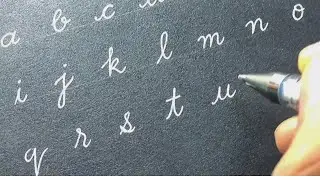 a b c
i j k l m n o
q r s t u